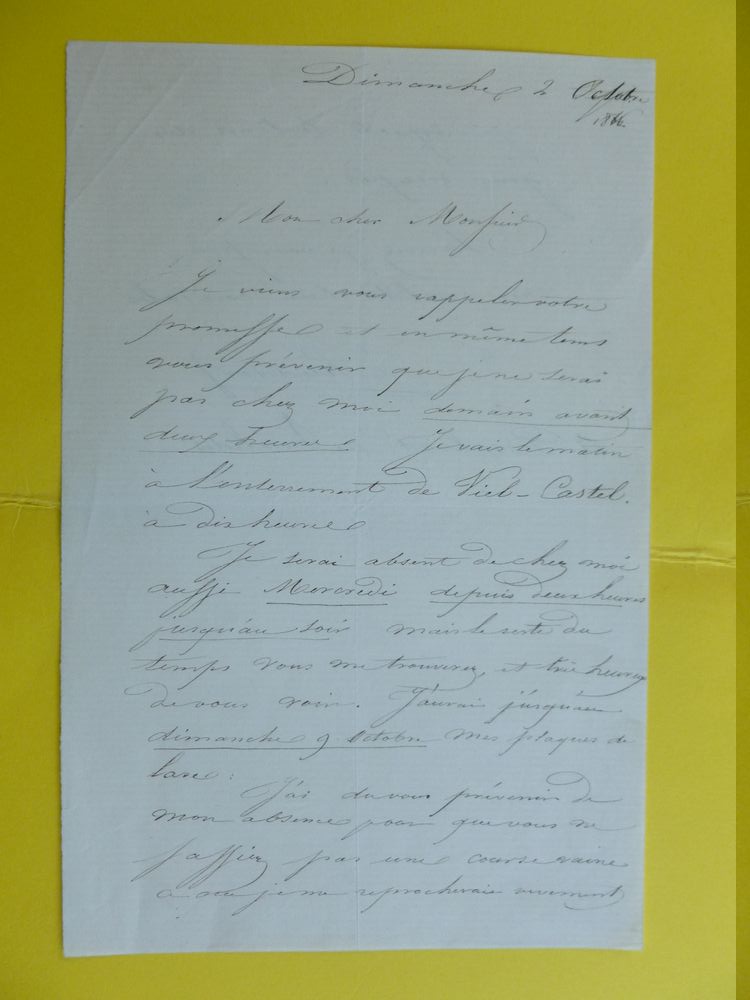 Dimanche 2 Octobre
Mon cher Monsieur
Je viens vous rappeler votre
promesse et en même tems
vous prévenir que je ne serai
pas chez moi demain avant
deux heures Je vais le matin
à l'enterrement de Viel-Castel.
à dix heures
Je serai absent de chez moi
aussi Mercredi depuis deux heures
jusqu'au soir mais le reste du
temps vous me trouverez, et très heureux
de vous voir. J'aurai jusqu'au
dimanche 9 Octobre mes plaques de
J'ai du vous prévenir de
mon absence pour que vous ne
fassiez pas une course vaine
je me reprocherais vivement